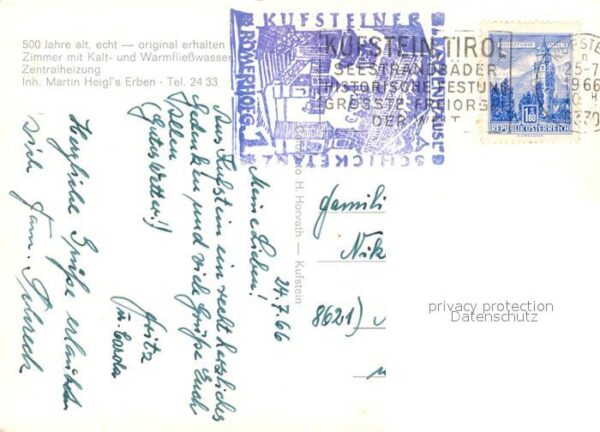 500 Jahre alt, echt — original erhalten
Zimmer mit Kalt- und Warmfließwasser
Zentralheizung
Inh. Martin Heigl's Erben · Tel. 24 33
KUFSTEINER
RÖMERHOFG. 1
SCHICKETANZ
KUFSTEIN, TIROL
SEESTRANDBÄDER
HISTORISCHE FESTUNG
GRÖSSTE FREIORG
DER W LT
25-7
1966
REPUBLIK ÖSTERREICH
H. Horvath — Kufstein
24.7.66
Meine Lieben!
Aus Kufstein ein recht herzliches
Gedenken und viele Grüße Euch
allen
(Gutes Wetter!)
Fritz
Herzliche Grüße erlauben
sich Fam.
Famili
Nik
8621)
privacy protection
Datenschutz